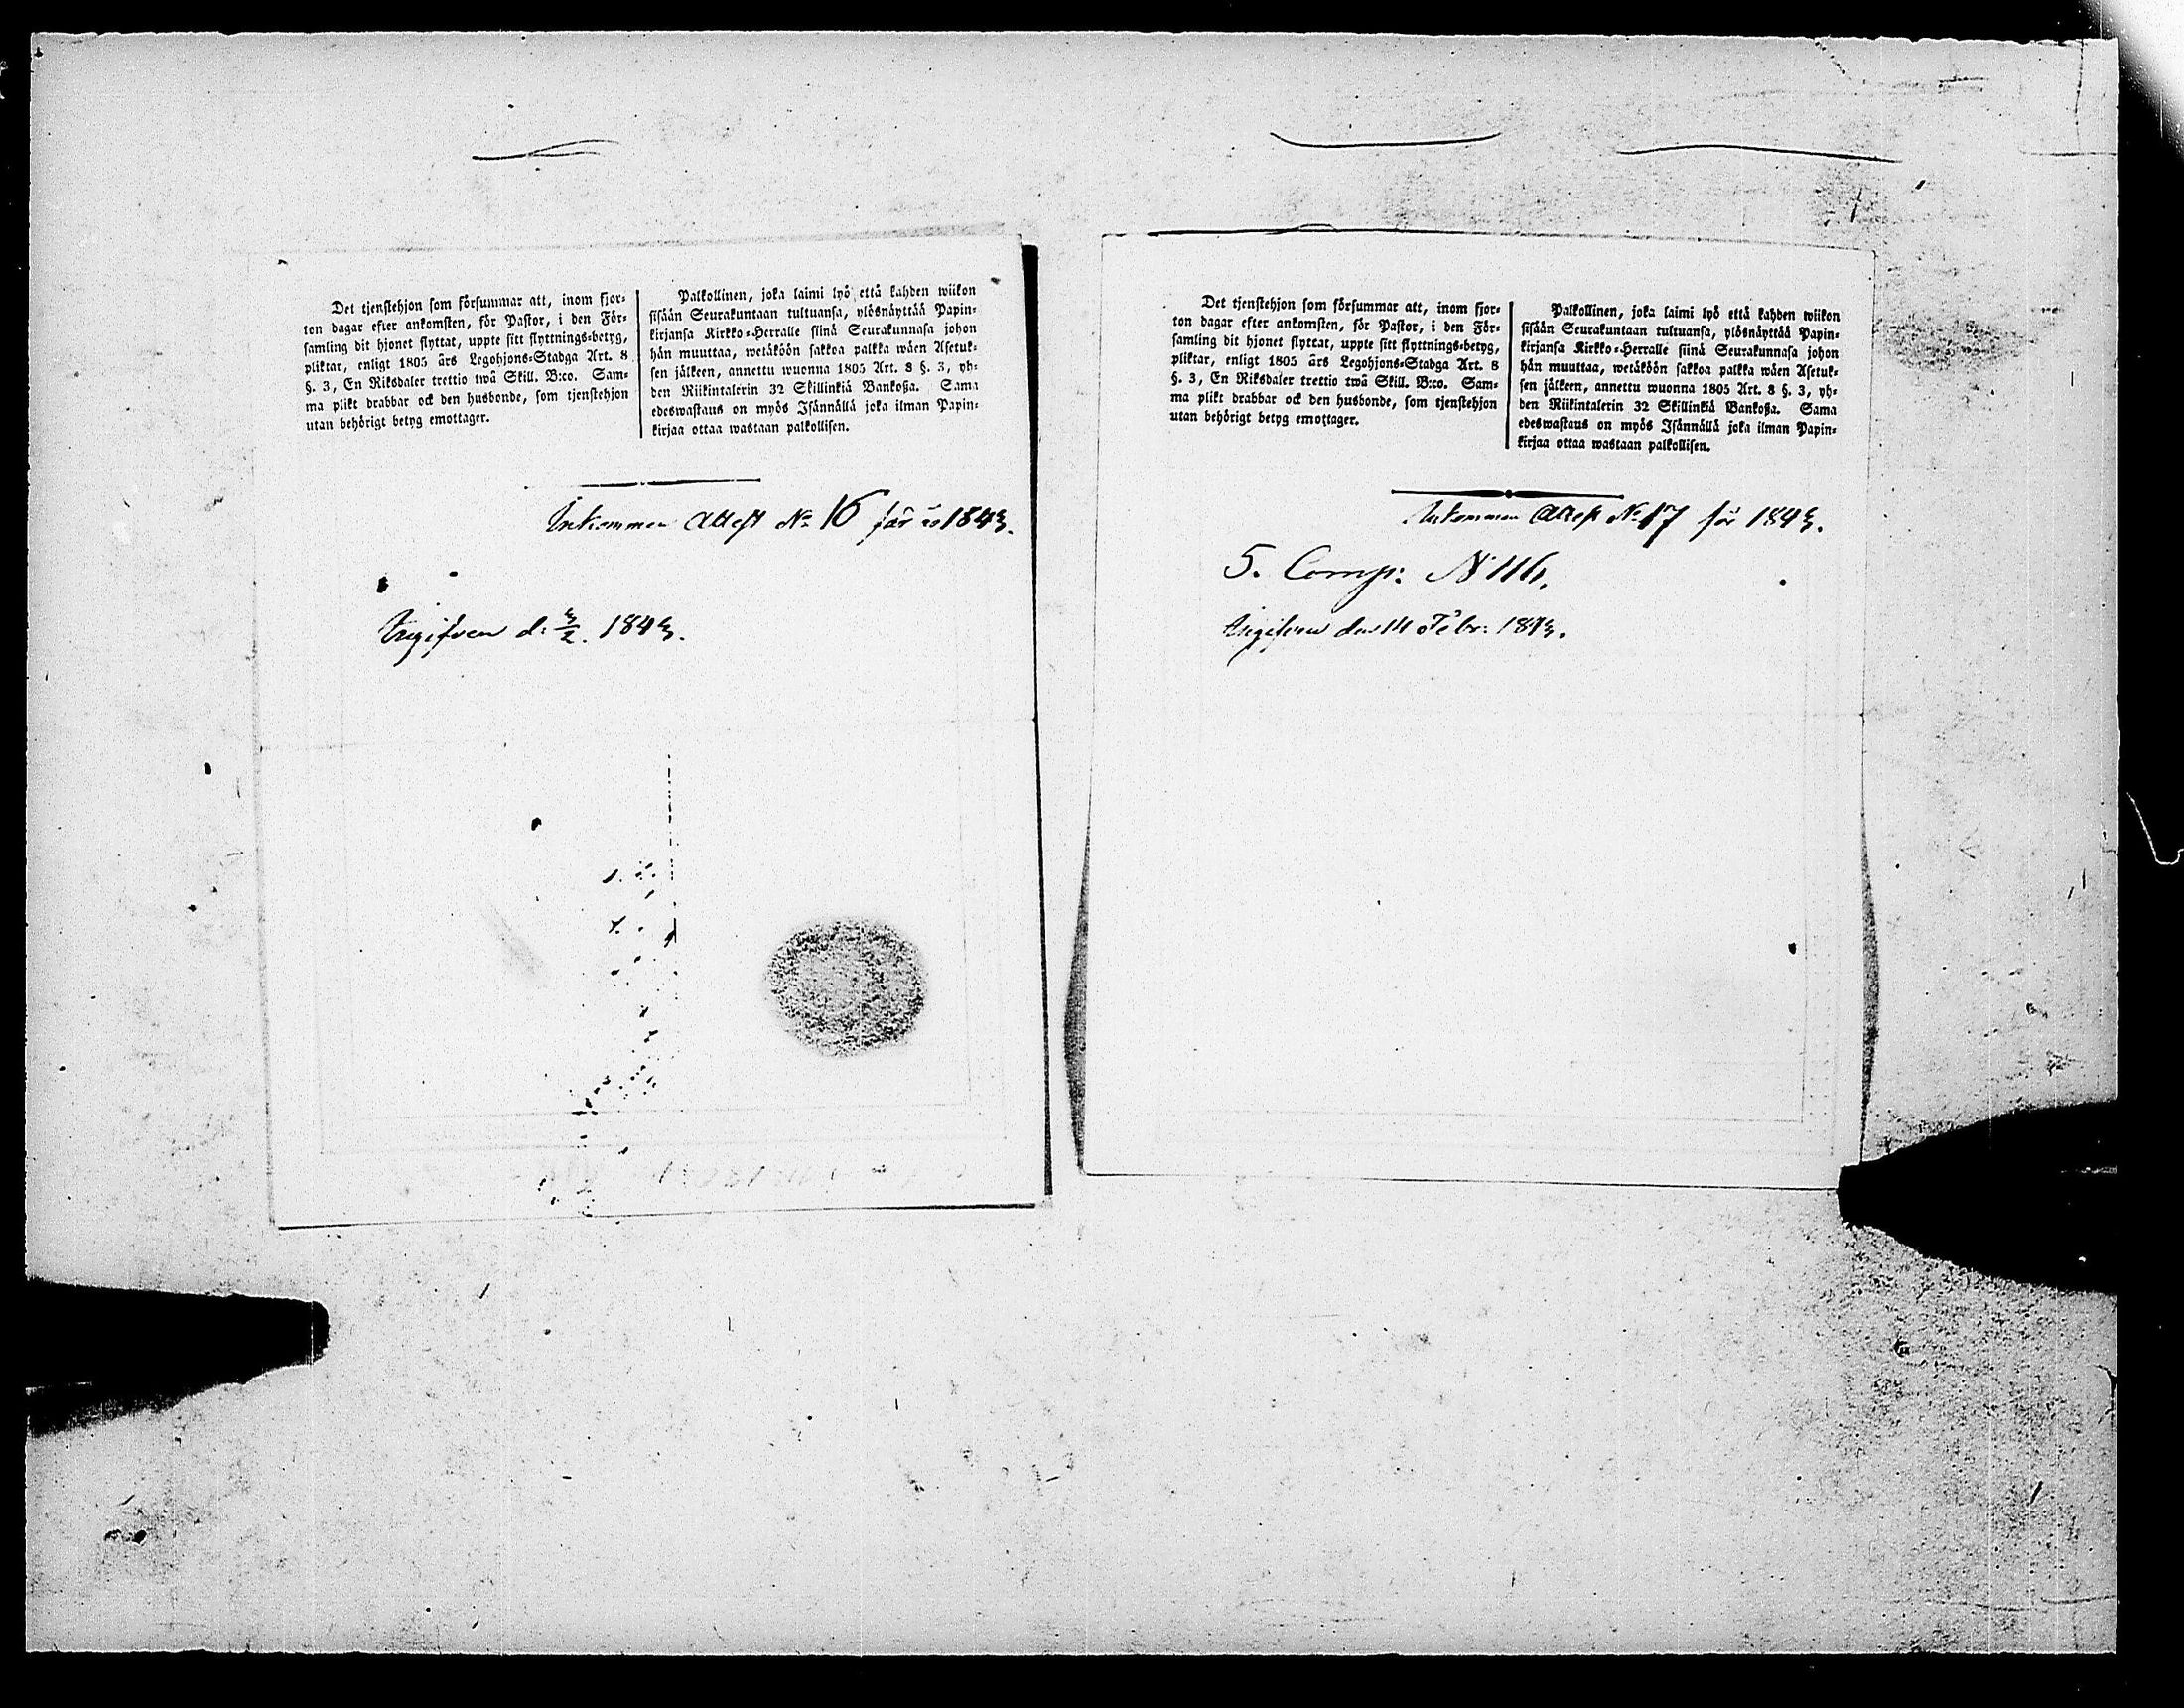 Det tjenstehjon som försummar att, inom fjor-
ton dagar efter ankomsten, för Pastor, i den För-
samling dit hjonet flyttat, uppte sitt flyttnings-betyg,
pliktar, enligt 1805 års Legohjons-Stadga Art. 8
§. 3, En Riksdaler trettio twå Skill. B:co. Sam-
ma plikt drabbar ock den husbonde, som tjenstehjon
utan behörigt betyg emottager.
Palkollinen, joka laimi lyö että kahden wiikon
sisään Seurakuntaan tultuansa, ylösnäyttää Papin-
kirjansa Kirkko-Herralle siinä Seurakunnasa johon
hän muuttaa, wetäköön sakkoa palkka wäen Asetuk-
sen jälkeen, annettu wuonna 1805 Art. 8 §. 3, yh-
den Riikintalerin 32 Skillinkiä Bankoßa. Sama
edeswastaus on myös Isännällä joka ilman Papin-
kirjaa ottaa wastaan palkollisen.
Inkommen Attest No 16 för år 1843.
Ingifven d. 3/2. 1843.
Det tjenstehjon som försummar att, inom fjor-
ton dagar efter ankomsten, för Pastor, i den För-
samling dit hjonet flyttat, uppte sitt flyttnings-betyg,
pliktar, enligt 1805 års Legohjons-Stadga Art. 8
§. 3, En Riksdaler trettio twå Skill. B:co. Sam-
ma plikt drabbar ock den husbonde, som tjenstehjon
utan behörigt betyg emottager.
Palkollinen, joka laimi lyö että kahden wiikon
sisään Seurakuntaan tultuansa, ylösnäyttää Papin-
kirjansa Kirkko-Herralle siinä Seurakunnasa johon
hän muuttaa, wetäköön sakkoa palkka wäen Asetuk-
sen jälkeen, annettu wuonna 1805 Art. 8 §. 3, yh-
den Riikintalerin 32 Skillinkiä Bankoßa. Sama
edeswastaus on myös Isännällä joka ilman Papin-
kirjaa ottaa wastaan palkollisen.
Inkommen Attest No 17 för 1843.
5. Comp: No 116.
Ingifven den 14 Febr: 1843.